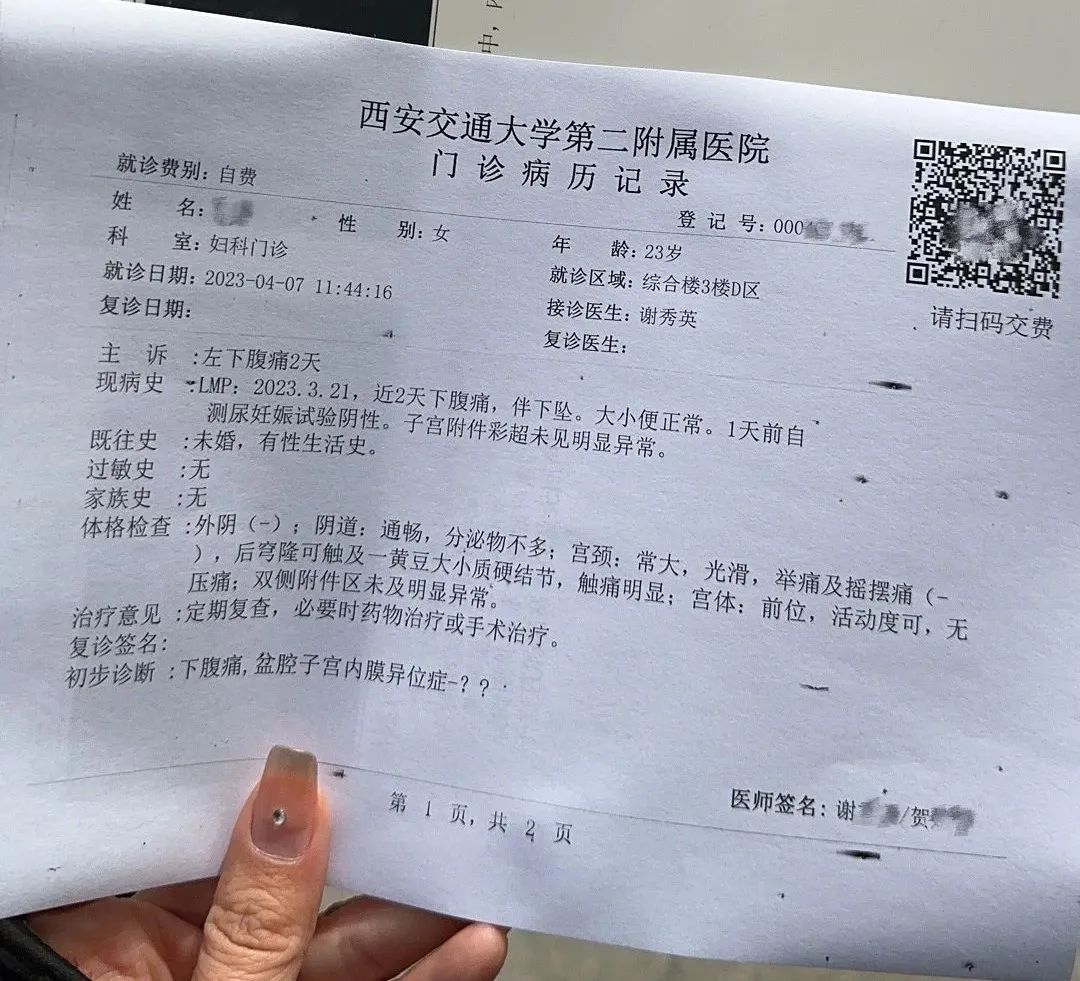 西安交通大学第二附属医院
门诊病历记录
就诊费别：自费
登记号：000
姓 名：
性 别：女
年 龄：23岁
科 室：妇科门诊
就诊区域：综合楼3楼D区
就诊日期：2023-04-07 11:44:16
接诊医生：谢秀英
复诊日期：
复诊医生：
请扫码交费
主 诉 ：左下腹痛2天
现病史 ：LMP：2023.3.21，近2天下腹痛，伴下坠。大小便正常。1天前自
测尿妊娠试验阴性。子宫附件彩超未见明显异常。
既往史 ：未婚，有性生活史。
过敏史 ：无
家族史 ：无
体格检查 ：外阴（-）；阴道：通畅，分泌物不多；宫颈：常大，光滑，举痛及摇摆痛（-
），后穹隆可触及一黄豆大小质硬结节，触痛明显；宫体：前位，活动度可，无
压痛；双侧附件区未及明显异常。
治疗意见 ：定期复查，必要时药物治疗或手术治疗。
复诊签名：
初步诊断 ：下腹痛,盆腔子宫内膜异位症-？？
医师签名：谢 /贺
第 1 页，共 2 页